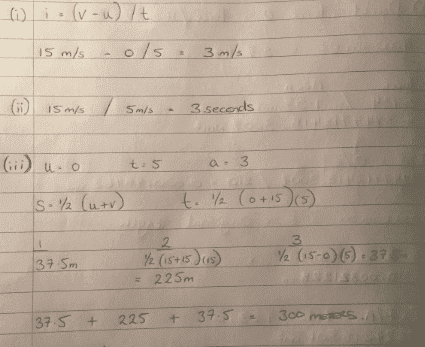 (i) i = (v - u) / t
15 m/s - 0 / 5 = 3 m/s
(ii) 15 m/s / 5m/s = 3 seconds
(iii) u = 0 t = 5 a = 3
S = 1/2 (u+v) t = 1/2 (0+15)(5)
1 2 3
37.5m 1/2 (15+15)(15) 1/2 (15-0)(5) = 37
= 225m
37.5 + 225 + 37.5 = 300 meters.